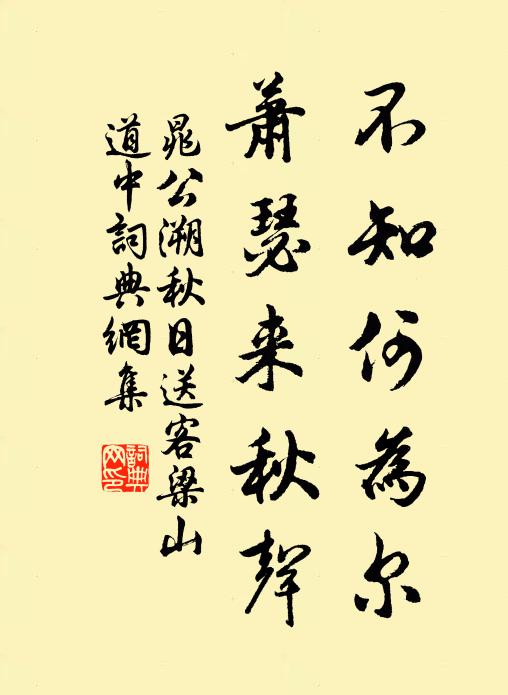 不知何為尔
蕭瑟来秋聲
晁公溯秋日送客梁山
道中詞典網集
詞典
网印